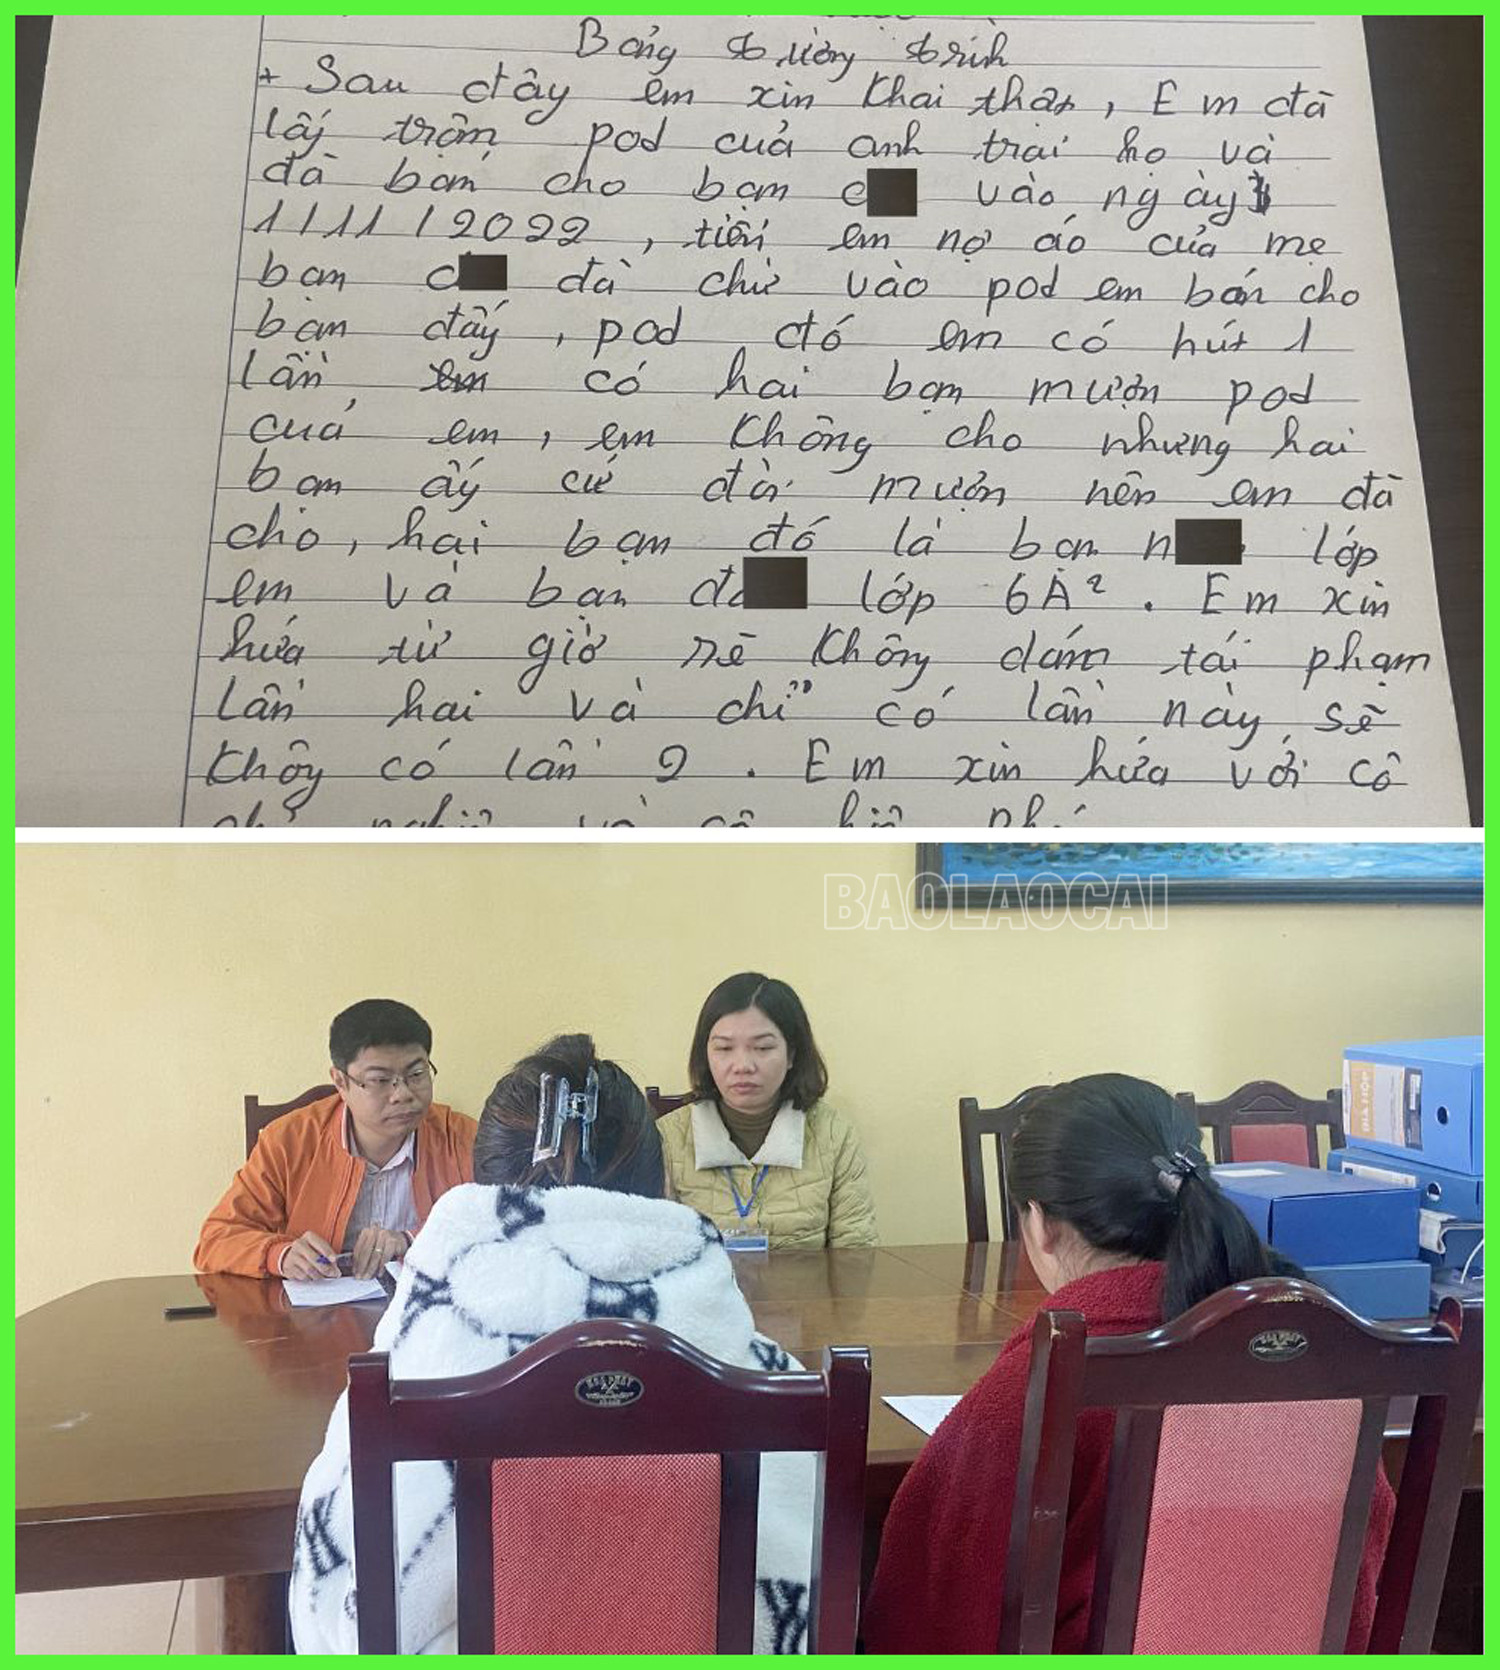 Bảng tường trình
+ Sau đây em xin khai thật, Em đã
lấy trộm pod của anh trai họ và
đã bán cho bạn c vào ngày
1/11/2022, tiền em nợ áo của mẹ
bạn c đã chừ vào pod em bán cho
bạn đấy, pod đó em có hút 1
lần, có hai bạn mượn pod
của em, em không cho nhưng hai
bạn ấy cứ đòi mượn nên em đã
cho, hai bạn đó là bạn n lớp
em và bạn đ lớp 6A². Em xin
hứa từ giờ sẽ không dám tái phạm
lần hai và chỉ có lần này, sẽ
không có lần 2. Em xin hứa với cô
BAOLAOCAI
HOA PHAT
HOA PHAT